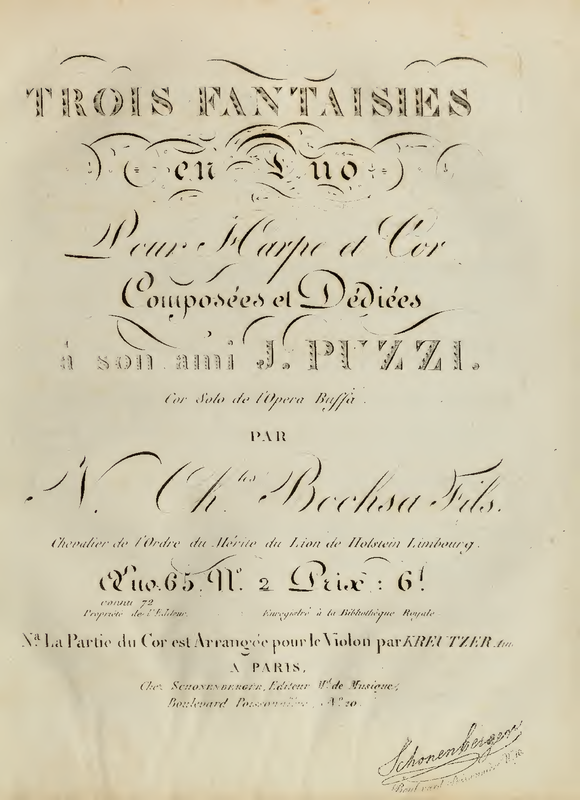 TROIS FANTAISIES
en Duo
Pour Harpe et Cor
Composées et Dédiées
à son ami J. PUZZI.
Cor Solo de l'Opera Buffa.
PAR
N. Ch.les Bochsa Fils.
Chevalier de l'Ordre du Mérite du Lion de Holstein Limbourg.
Œuv. 65. N.o 2 Prix : 6f
connu 72
Propriété de l'Editeur. Enregistré à la Bibliothèque Royale
N.a La Partie du Cor est Arrangée pour le Violon par KREUTZER
A PARIS,
Chez SCHONENBERGER, Editeur M.d de Musique,
Boulevard Poissonnière, N.o 10.
Schonenberger
Boulevart Poissonnière